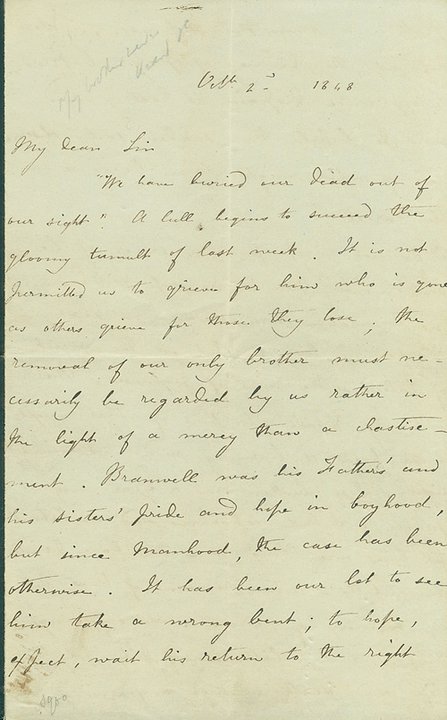 Octbr 2d 1848
My dear Sir
"We have buried our dead out of
our sight". A lull begins to succeed the
gloomy tumult of last week. It is not
permitted us to grieve for him who is gone
as others grieve for those they lose; The
removal of our only brother must ne-
cessarily be regarded by us rather in
the light of a mercy than a chastise-
ment. Branwell was his Father's and
his sisters' pride and hope in boyhood,
but since Manhood, the case has been
otherwise. It has been our lot to see
him take a wrong bent; to hope,
expect, wait his return to the right